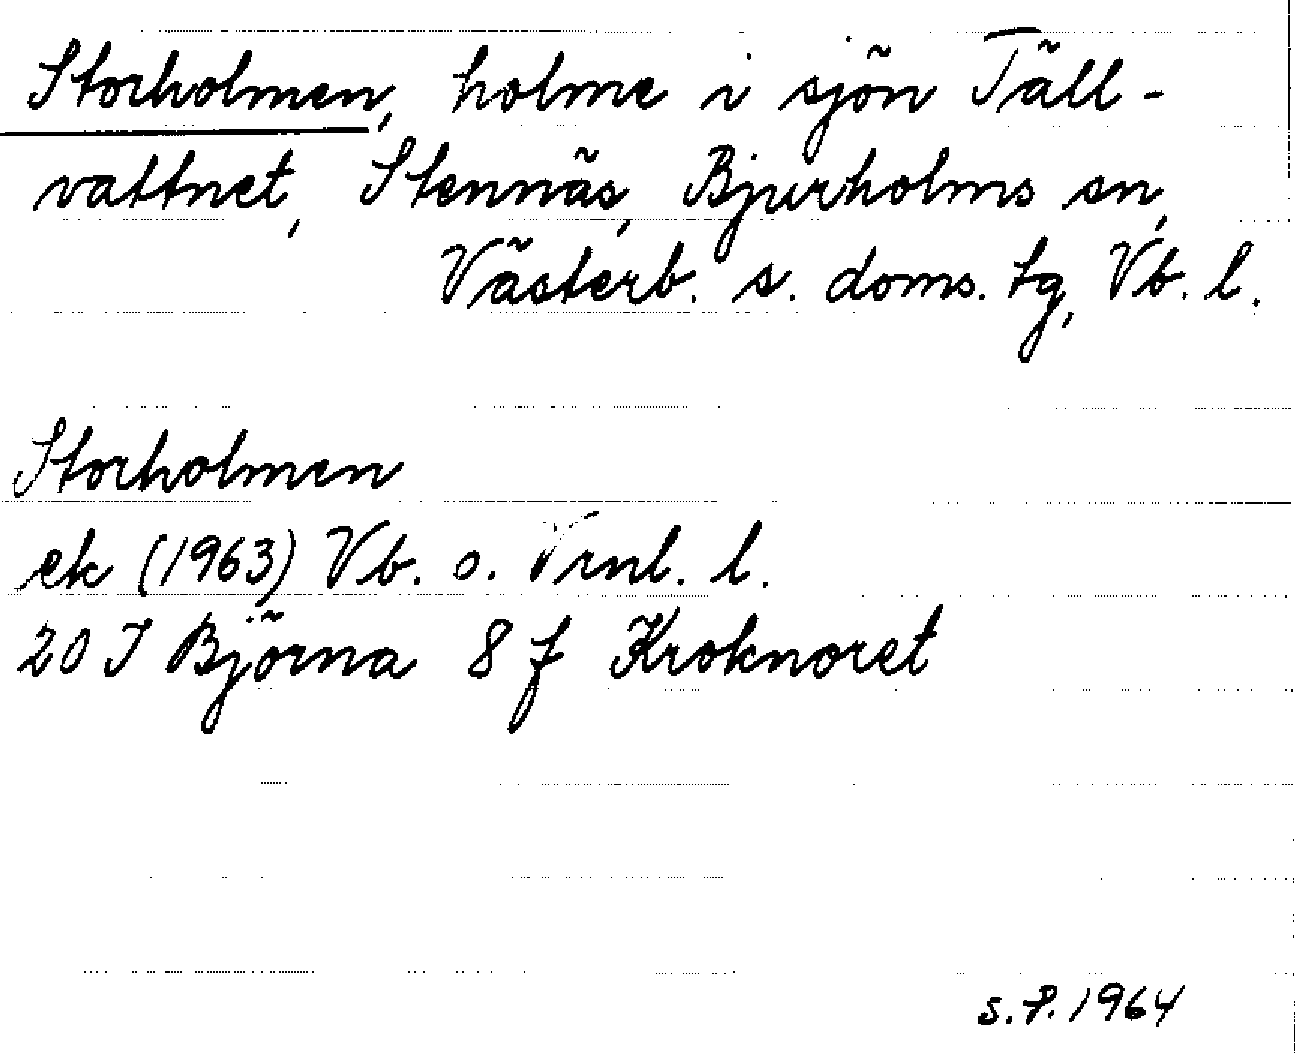 Storholmen, holme i sjön Täll-
vattnet, Stennäs, Bjurholms sn,
Västerb. s. doms. tg, Vb. l.
Storholmen
ek (1963) Vb. o. Vrnl. l.
20 I Björna 8 f Kroknoret
S.P. 1964